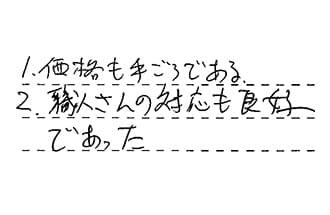 1.価格も手ごろである.
2.職人さんの対応も良好
であった